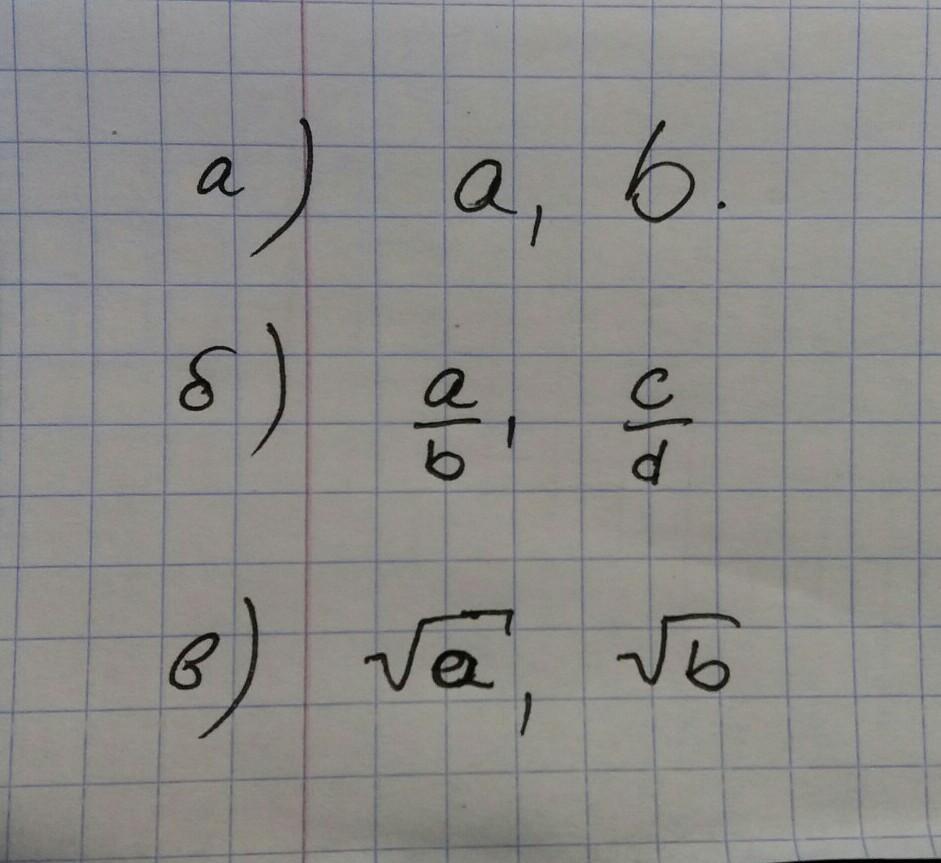 а) a, b.
б) a/b, c/d
в) √a, √b